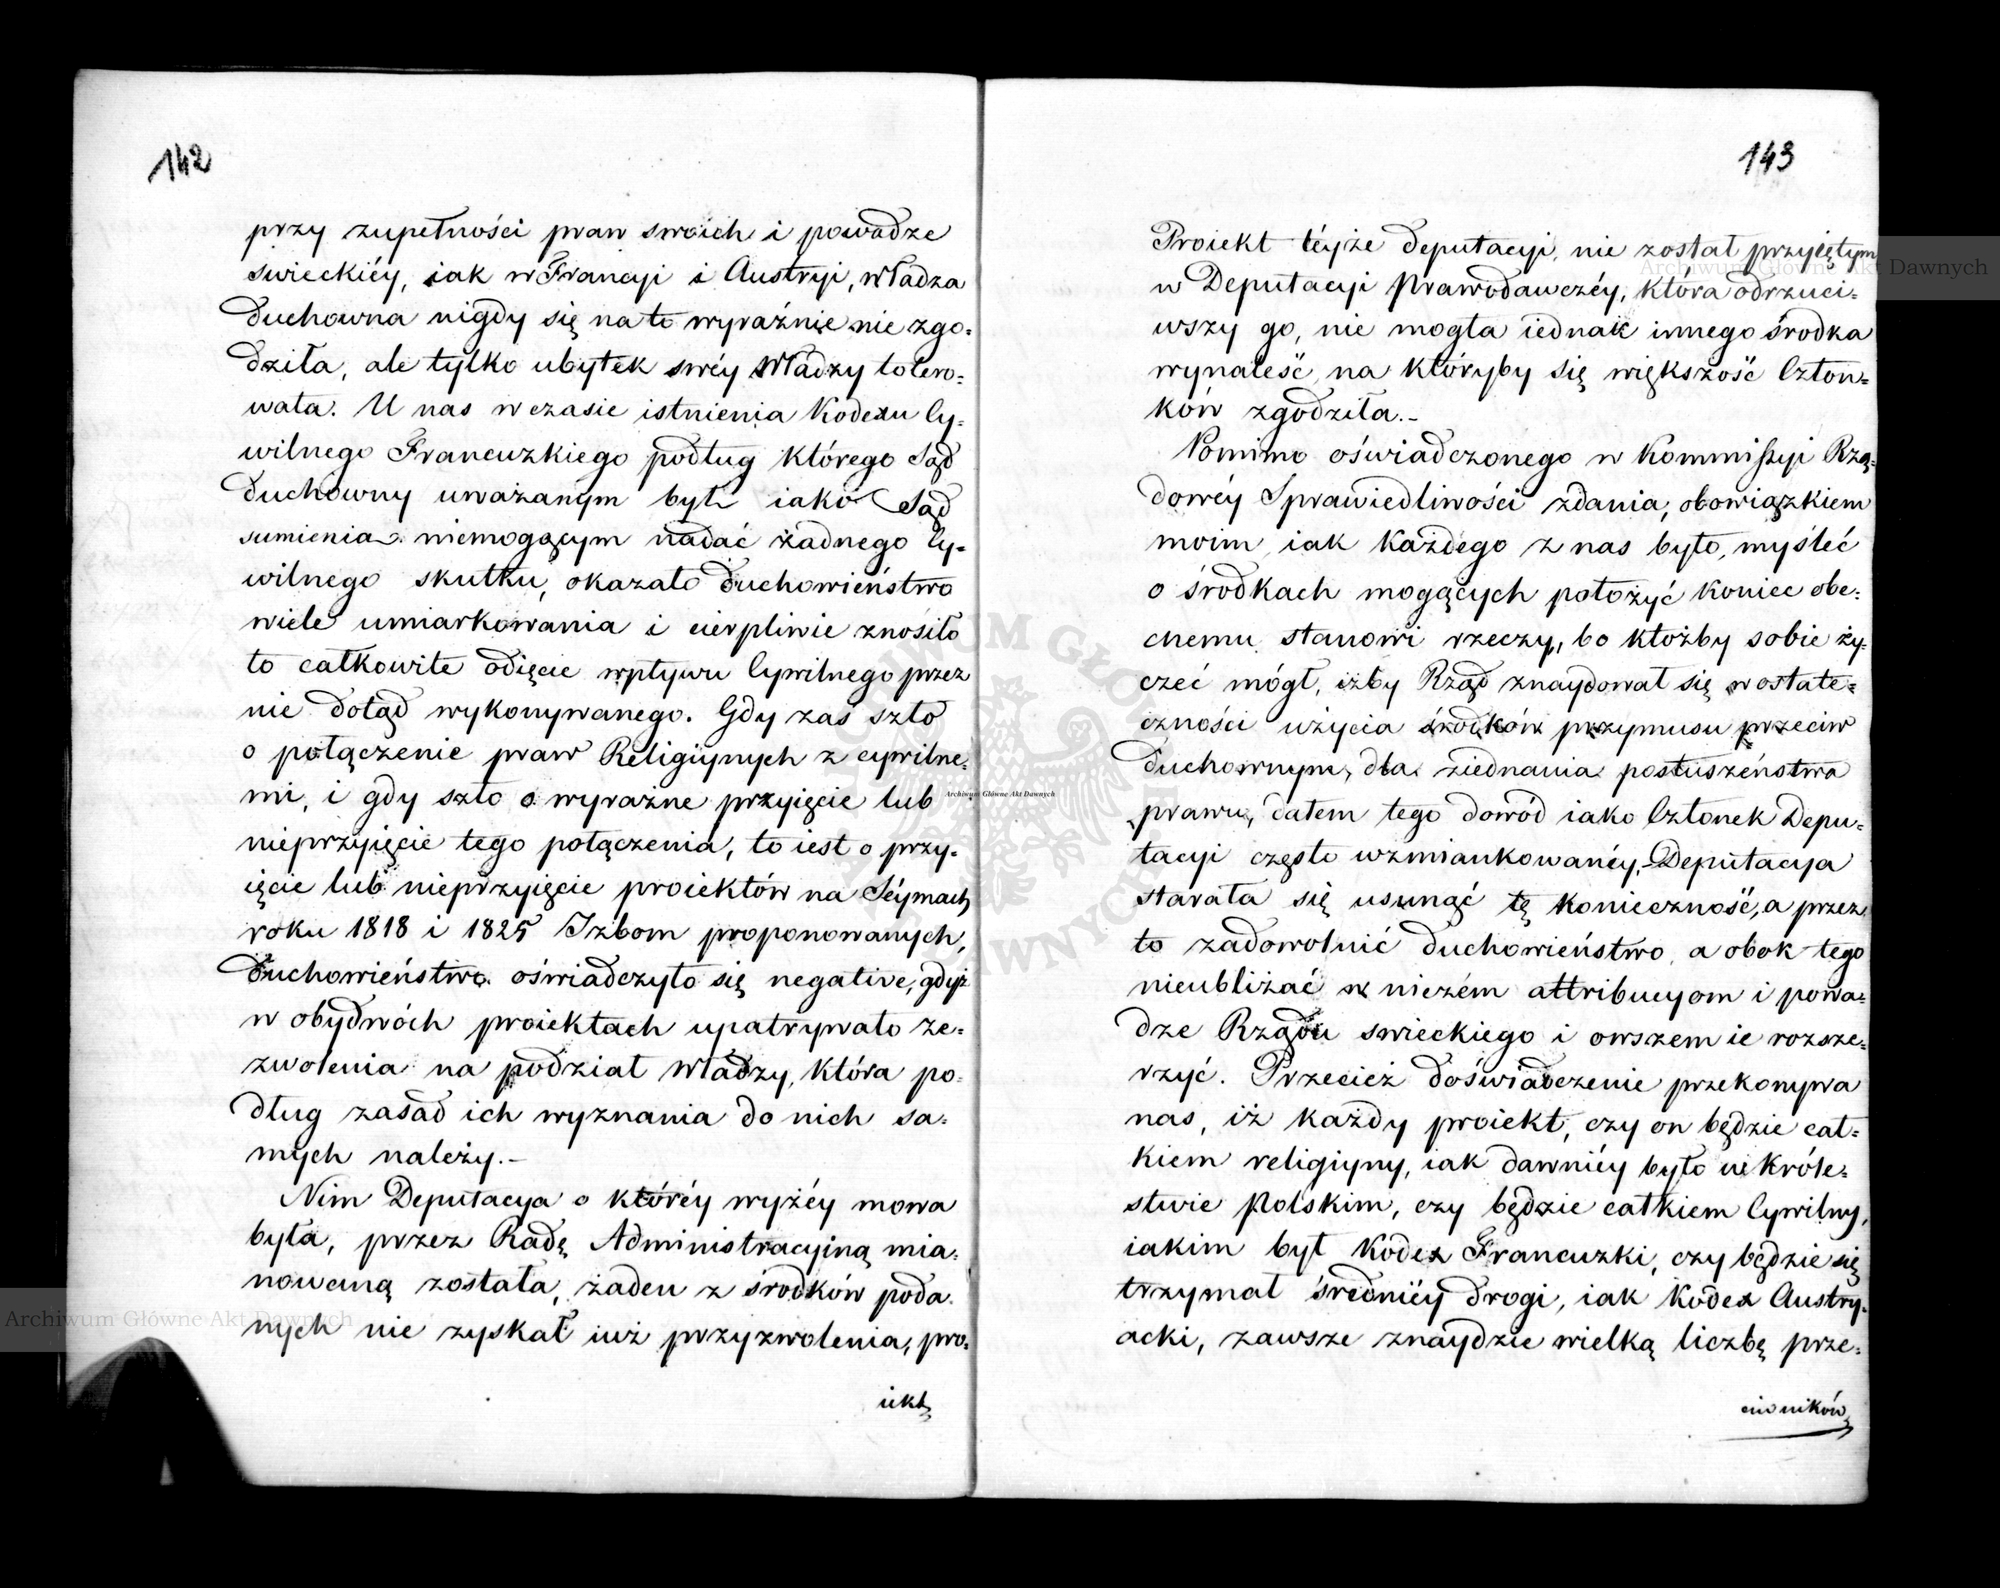 142
przy zupełności praw swoich i powadze
swieckiéy, iak w Francyi i Austryi, władza
duchowna nigdy się na to wyraźnie nie zgo-
dziła, ale tylko ubytek swéy władzy tolero-
wała. U nas w czasie istnienia Kodexu Cy-
wilnego Francuzkiego podług którego Sąd
duchowny uważanym był iako Sąd
sumienia niemogącym nadać żadnego Cy-
wilnego skutku, okazało duchowieństwo
wiele umiarkowania i cierpliwie znosiło
to całkowite odięcie wpływu Cywilnego przez
nie dotąd wykonywanego. Gdy zaś szło
o połączenie praw Religiynych z cywilne-
mi, i gdy szło o wyraźne przyięcie lub
nieprzyięcie tego połączenia, to iest o przy-
ięcie lub nieprzyięcie proiektów na Séymach
roku 1818 i 1825 Izbom proponowanych,
duchowieństwo oświadczyło się negative, gdyż
w obydwóch proiektach upatrywało ze-
zwolenia na podział władzy, która po-
dług zasad ich wyznania do nich sa-
mych należy.-
Nim Deputacya o któréy wyżéy mowa
była, przez Radę Administracyiną mia-
nowaną została, żaden z środków poda-
nych nie zyskał iuż przyzwolenia, pro-
iekt
143
Proiekt téyże deputacyi, nie został przyiętym
w Deputacyi Prawodawczéy, która odrzuci-
wszy go, nie mogła iednak innego środka
wynaleść, na któryby się większość Człon-
ków zgodziła.-
Pomimo oświadczonego w Kommissyi Rzą-
dowéy Sprawiedliwości zdania, obowiązkiem
moim, iak każdego z nas było, myśleć
o środkach mogących położyć koniec obe-
cnemu stanowi rzeczy, bo któżby sobie ży-
czeć mógł, iżby Rząd znaydował się w ostate-
czności użycia środków przymusu przeciw
duchownym, dla ziednania posłuszeństwa
prawu, dałem tego dowód iako Członek Depu-
tacyi często wzmiankowanéy. Deputacya
starała się usunąć tę konieczność, a przez
to zadowolnić duchowieństwo, a obok tego
nieubliżać w niczém attribucyom i powa-
dze Rządu swieckiego i owszem ie rozsze-
rzyć. Przecież doświadczenie przekonywa
nas, iż każdy proiekt, czy on będzie cał-
kiem religiyny, iak dawniéy było w Króle-
stwie Polskim, czy będzie całkiem Cywilny,
iakim był Kodex Francuzki, czy będzie się
trzymał średniéy drogi, iak Kodex Austry-
acki, zawsze znaydzie wielką liczbę prze-
ciwników
Archiwum Główne Akt Dawnych
Archiwum Główne Akt Dawnych
Archiwum Główne Akt Dawnych